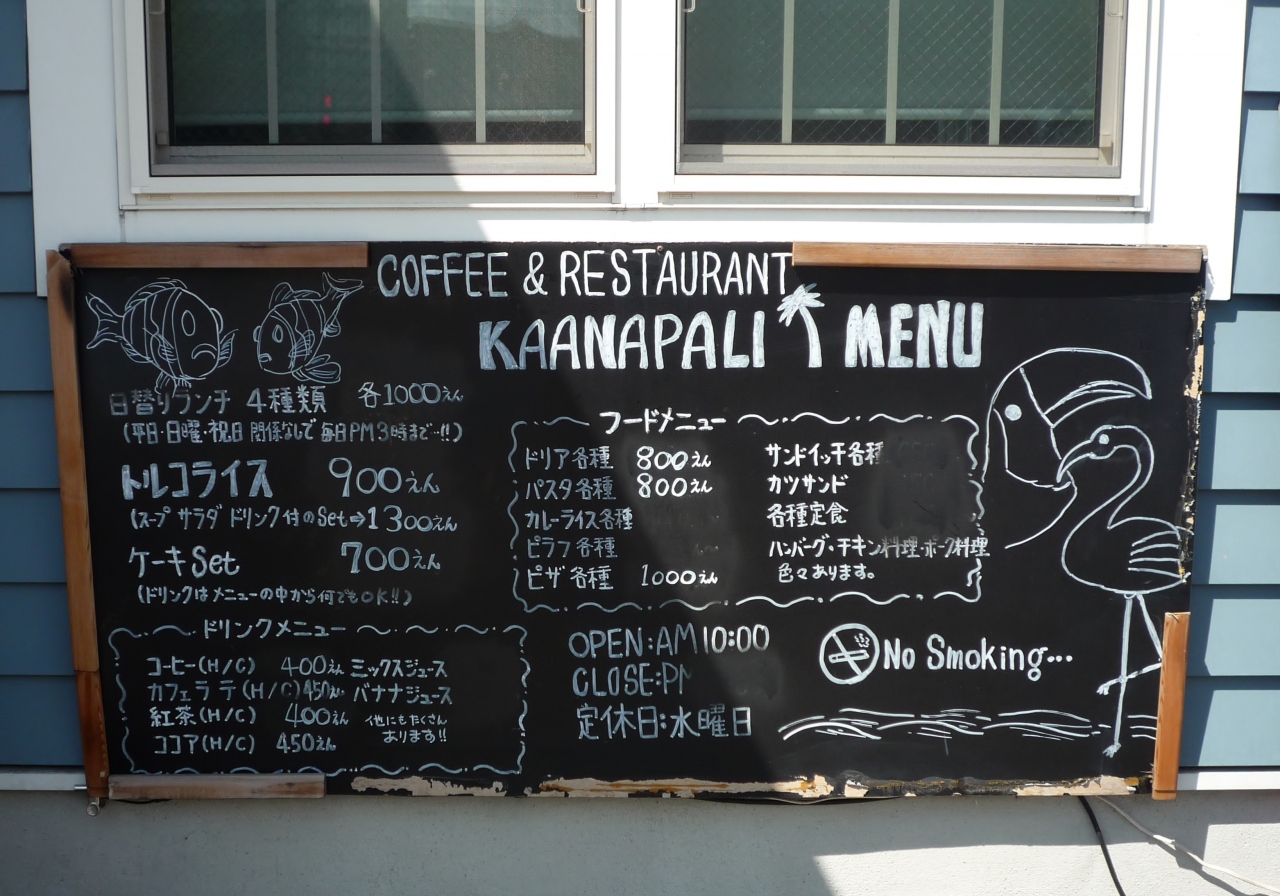 COFFEE & RESTAURANT
KAANAPALI MENU
日替りランチ 4種類 各1000えん
(平日・日曜・祝日 関係なしで 毎日PM3時まで…!!)
トルコライス 900えん
(スープ サラダ ドリンク付のSet⇒1300えん
ケーキSet 700えん
(ドリンクはメニューの中から何でもOK!!)
ドリンクメニュー
コーヒー(H/C) 400えん ミックスジュース
カフェラテ(H/C) 450えん バナナジュース
紅茶(H/C) 400えん 他にもたくさん
あります!!
ココア(H/C) 450えん
フードメニュー
ドリア各種 800えん サンドイッチ各種
パスタ各種 800えん カツサンド
カレーライス各種 各種定食
ピラフ各種 ハンバーグ・チキン料理・ポーク料理
ピザ各種 1000えん 色々あります。
OPEN:AM10:00
CLOSE:PM
定休日:水曜日
No Smoking...